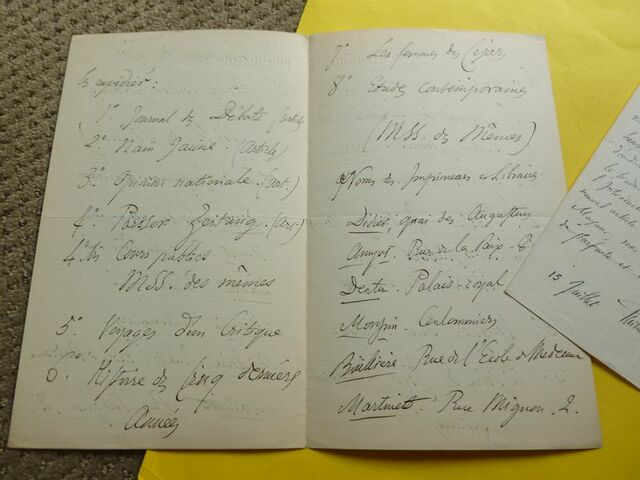 expédier :
1° Journal des Débats (articles)
2° Nain Jaune. (Articles)
3° Opinion nationale. (Art.)
4° Pariser Zeitung. (Art.)
4° bis Cours publics
MSS. des mêmes
5° Voyages d'un Critique
6° Histoire des Cinq dernières
Années
7° Les femmes des Césars
8° Etudes contemporaines
(MSS. des Mêmes)
Noms des Imprimeurs et Libraires
Didier, quai des Augustins
Amyot. Rue de la Paix.
Dentu. Palais-royal
Moussin. Coulommiers
Baillière. Rue de l'Ecole de Médecine
Martinet. Rue Mignon 2.
nouvel article
de parfaite
15 Juillet